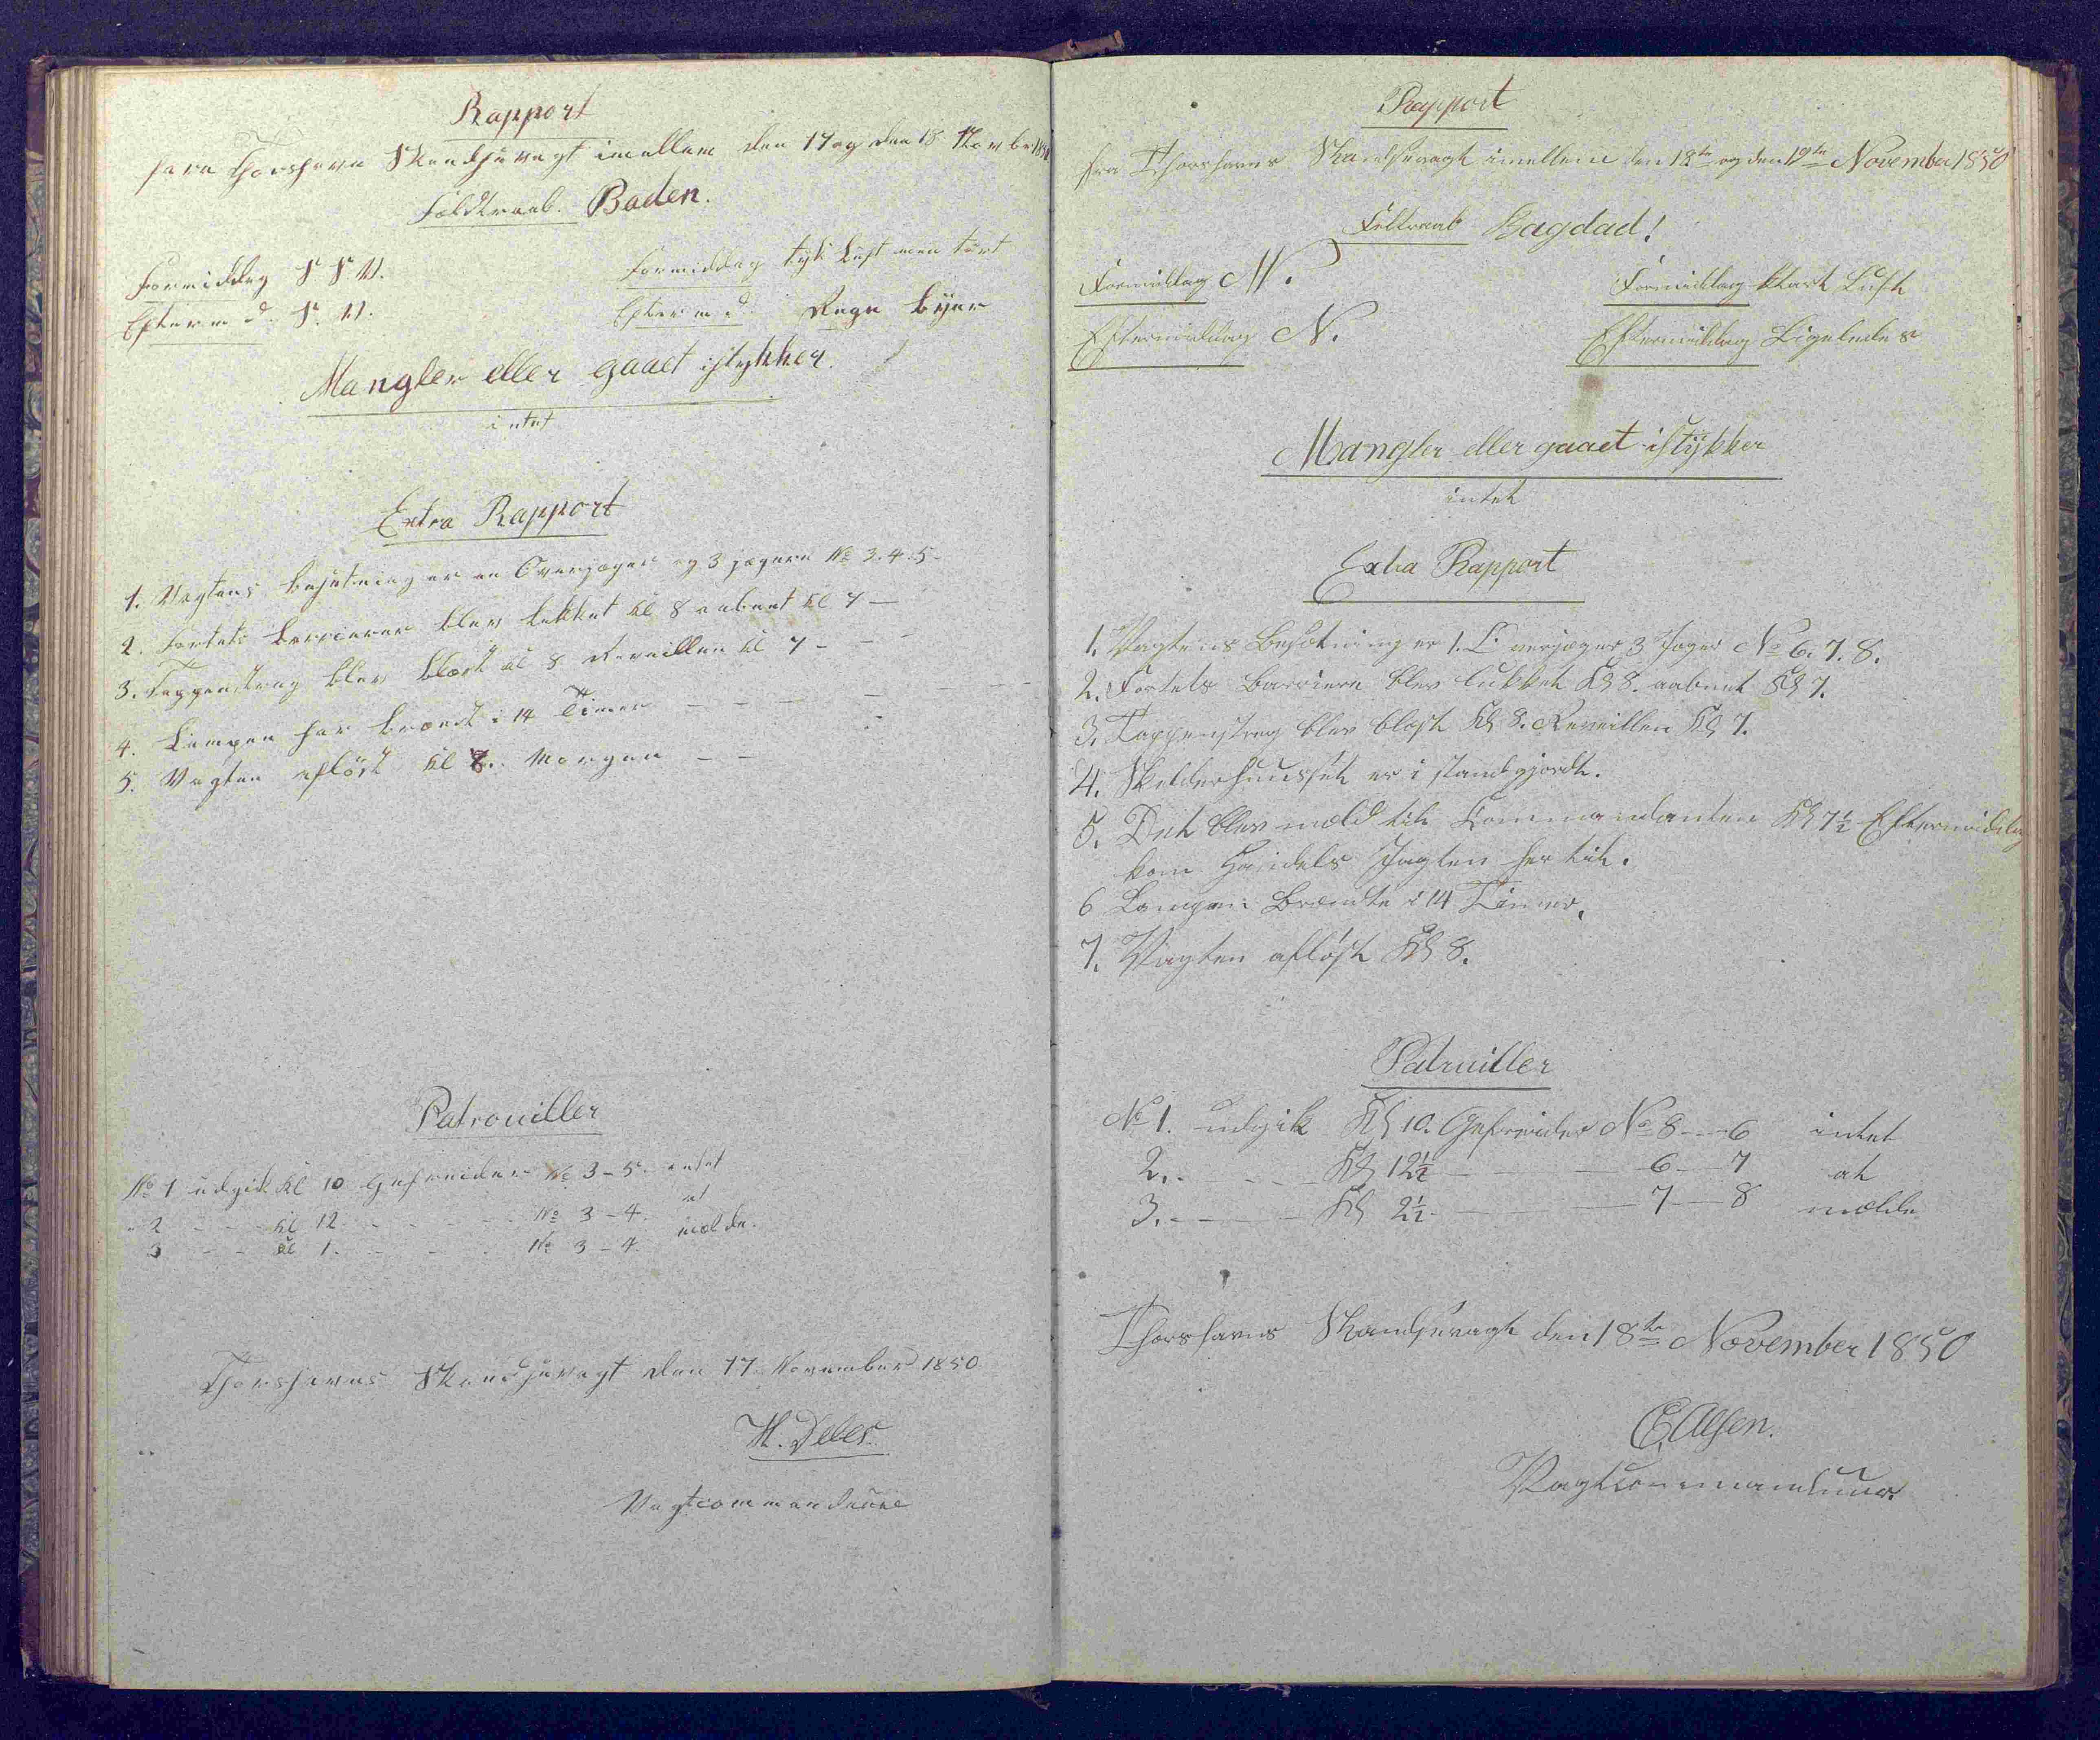 Rapport
fra Thorshavn Skandsevagt imellem den 17 og den 18 Novbr 1850
Feldtraab. Baden.
Formiddag S S V. Formiddag tyk Luft men tört
Efterm d. S. V. Efterm d. Regn Byer
Mangler eller gaaet istykker.
intet
Extra Rapport
1. Vagtens besætning er en Overjæger og 3 jægere No 3. 4. 5 -
2. Fortets barrierer blev lukket kl 8 aabnet kl 7 -
3. Tappenstreg blev blæst kl 8 Reveillen kl 7 -
4. Lampen har brændt i 14 Timer
5. Vagten aflöst kl 8. Morgen
Patrouiller
No 1 udgik kl 10 Gefreider No 3 - 5. intet
" 2 - - - kl 12. - - - - No 3 - 4. at
3 - - kl 1. - - - No 3 - 4. melde.
Thorshavns Skandsevagt den 17. November 1850
H. Debes
Vagtcommandeur
Rapport
fra Thorshavns Skandsevagt imellem den 18te og den 19te November 1850
Feltraab Bagdad!
Formiddag N. Formiddag klart Luft
Eftermiddag N. Eftermiddag Ligeledes
Mangler eller gaaet istykker
intet
Extra Rapport
1. Vagtens Besætning er 1. Overjæger 3 Jæger No 6. 7. 8.
2. Fortets Barriere blev lukket Kl 8. aabnet Kl 7.
3. Tappenstreg blev blæst Kl 8. Reveillen Kl 7.
4. Skilderhuusset er i standgjordt.
5. Det blev meld til Commandanten Kl 7½ Eftermiddag
kom Handels Jagten her til.
6 Lampen Brændte i 14 Timer.
7. Vagten aflöst Kl 8.
Patruiller
No 1. udgik Kl 10. Gefreider No 8 - - 6 intet
2. - - - - Kl 12½ - - - 6 - - 7 at
3. - - - - Kl 2½ - - - 7 - - 8 melde
Thorshavns Skandsevagt den 18te November 1850
E. Olsen.
Vagtcommandeur.